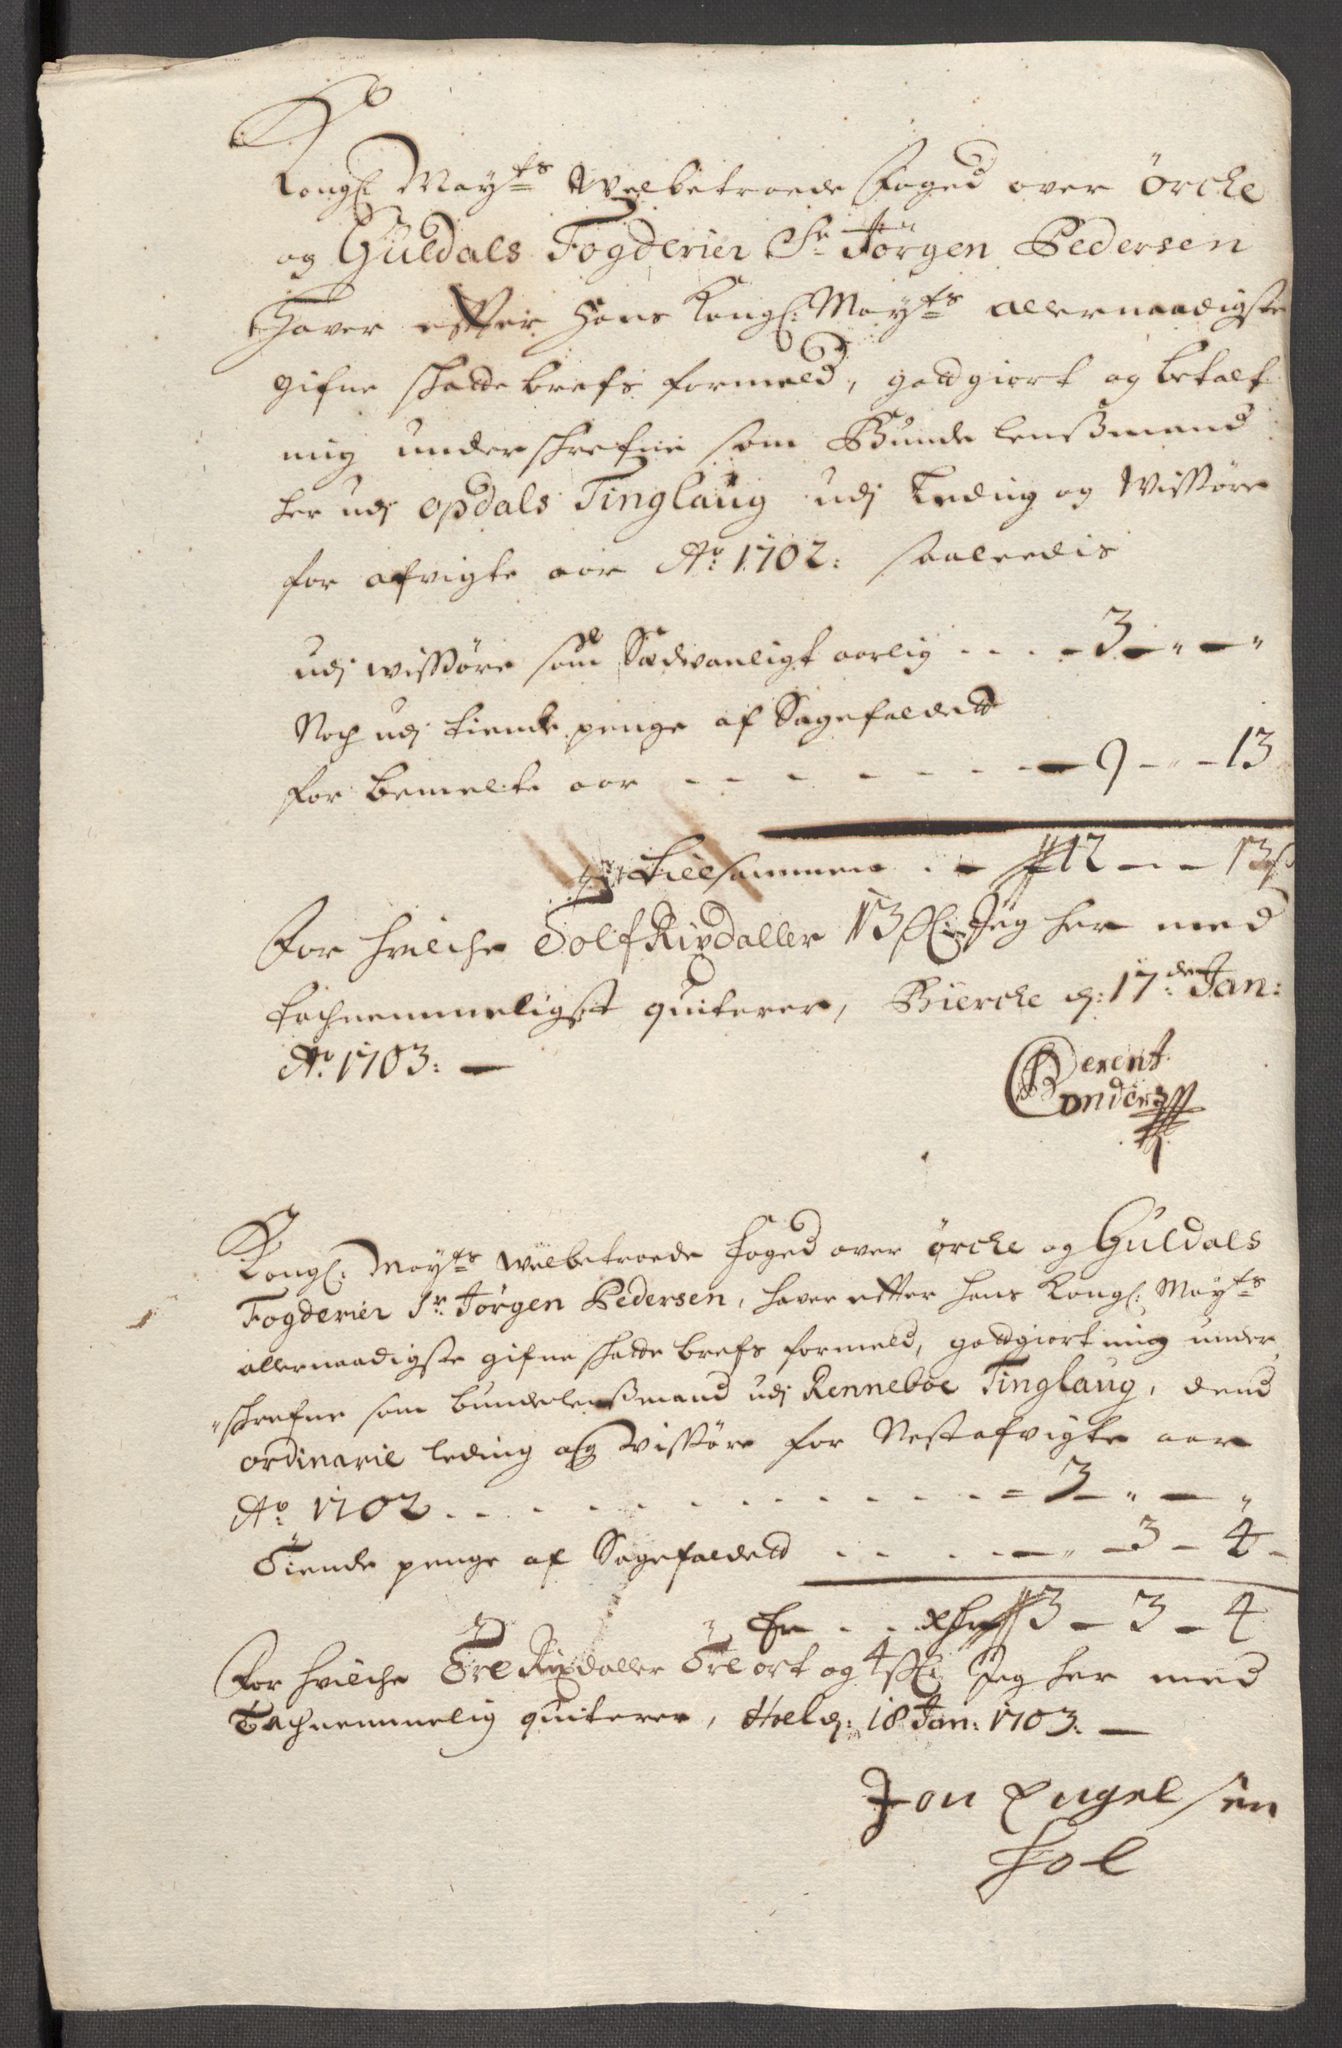 Kongl: Mayts Welbetroede Foged over Örche
og Guldals Fogderier Sr Jörgen Pedersen
Hafver efter Hans Kongl: Mayts allernaadigste
gifne schadebrefs formeld, gotgiort og betalt
mig underschrefne som Bunde lensßmand
her udj Opdals Tinglaug udj Leding og Wissöre
for afvigte aar Ao: 1702: saaledis
udj wissöre som Sædvanligt aarlig . . . - 3 - " - "
Noch udj tiende penge af Sagefaldett
for bemelte aar - - - - - - - 9 - " - 13
Er tilsammen . - 12 - - 13 s
For hvilche Tolf Rixdaller 13 s: Jeg her med
tachnemmeligst quiterer, Bierche d: 17de Jan:
Ao: 1703: -
Berent
Kongl: Mayts welbetroede foged over örche og Guldals
Fogderier Sr Jörgen Pedersen, haver efter hans Kongl: Mayts
allernaadigste gifne schadebrefs formeld, gotgiort mig under
"schrefne som bundelensßmand udj Renneboe Tinglaug, dend
ordinarie leding og Wissöre for Nestafvigte aar
Ao: 1702 . . . . . . . . . = 3 - " - "
Tiende penge af Sagefaldett . . . . - " - 3 - 4 -
Er . . 3 - 3 - 4
For hvilche Tre Rixdaller Tre ort og 4 s: Jeg her med
Tachnemmelig quiterer, Hoel d: 18 Jan: 1703: -
Jon Engelsen
Hol